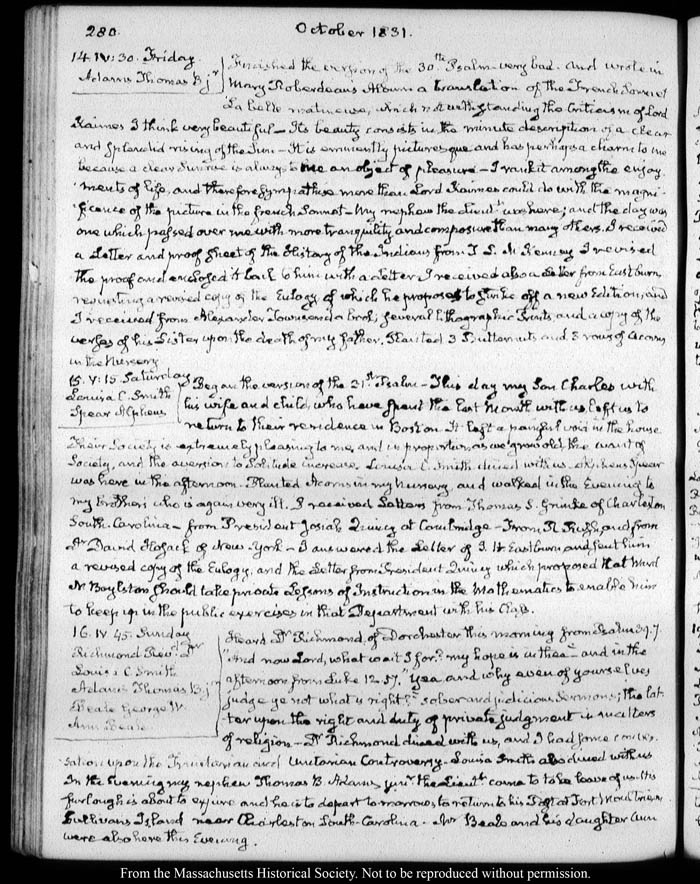 280.
October 1831.
14. IV: 30. Friday.
Adams Thomas B jr
Finished the version of the 30th Psalm very bad. and wrote in
Mary Roberdeau's Album a translation of the French Sonnet
La belle matineuse, which notwithstanding the Criticism of Lord
Kaimes I think very beautiful — Its beauty consists in the minute description of a clear
and splendid rising of the Sun — It is eminently picturesque and has perhaps a charm to me
because a clear Sunrise is always to me an object of pleasure — I rank it among the enjoy-
-ments of life, and therefore sympathise more than Lord Kaimes could do with the magni-
-ficence of the picture in the French Sonnet — My nephew the Lieutt was here; and the day was
one which passed over me with more tranquility and composure than many others. I received
a Letter and proof sheet of the History of the Indians from T. L. McKenney I revised
the proof and enclosed it back to him with a Letter. I received also a Letter from Eastburn,
requesting a revised copy of the Eulogy, of which he proposes to strike off a new Edition, and
I received from Alexander Townsend a book, several Lithographic Prints and a copy of the
verses of his Sister upon the death of my father. Planted 3 Butternuts and 3 rows of Acorns
in the Nursery
15. V: 15. Saturday
Louisa C. Smith
Spear Alpheus
Began the version of the 31st Psalm — This day my Son Charles with
his wife and child, who have spent the last Month with us, left us to
return to their residence in Boston. It left a painful void in the house
Their Society is extremely pleasing to me, and in proportion as we grow old, the want of
Society, and the aversion to Solitude increase. Louisa C. Smith dined with us. Alpheus Spear
was here in the afternoon. Planted Acorns in my Nursery and walked in the Evening to
my brother's who is again very ill. I received Letters from Thomas S. Grimke of Charleston
South-Carolina — from President Josiah Quincy at Cambridge — From R. Rush, and from
Dr David Hosack of New-York — I answered the Letter of J. H. Eastburn and sent him
a revised copy of the Eulogy, and the Letter from President Quincy which proposed that Ward
N Boylston should take private Lessons of Instruction in the Mathematics to enable him
to keep up in the public exercises in that Department with his Class.
16. IV. 45. Sunday
Richmond Revd Dr
Louisa C. Smith
Adams Thomas B. jr
Beale George W
Ann Beale
Heard Dr Richmond, of Dorchester this morning from Psalm 39. 7
"And now Lord, what wait I for? my hope is in thee" and in the
afternoon from Luke 12. 57. "Yea and why even of yourselves
judge ye not what is right?" sober and judicious Sermons; the lat-
-ter upon the right and duty of private judgment in matters
of religion — Dr Richmond dined with us, and I had some conver-
-sation upon the Trinitarian and Unitarian Controversy. Louisa Smith also dined with us
In the Evening my nephew Thomas B. Adams junr the Lieutt came to take leave of us. His
furlough is about to expire and he is to depart to-morrow, to return to his Post at Fort Moultrie,
Sullivans Island near Charleston South-Carolina. Mr Beale and his daughter Ann
were also here this Evening.
From the Massachusetts Historical Society. Not to be reproduced without permission.